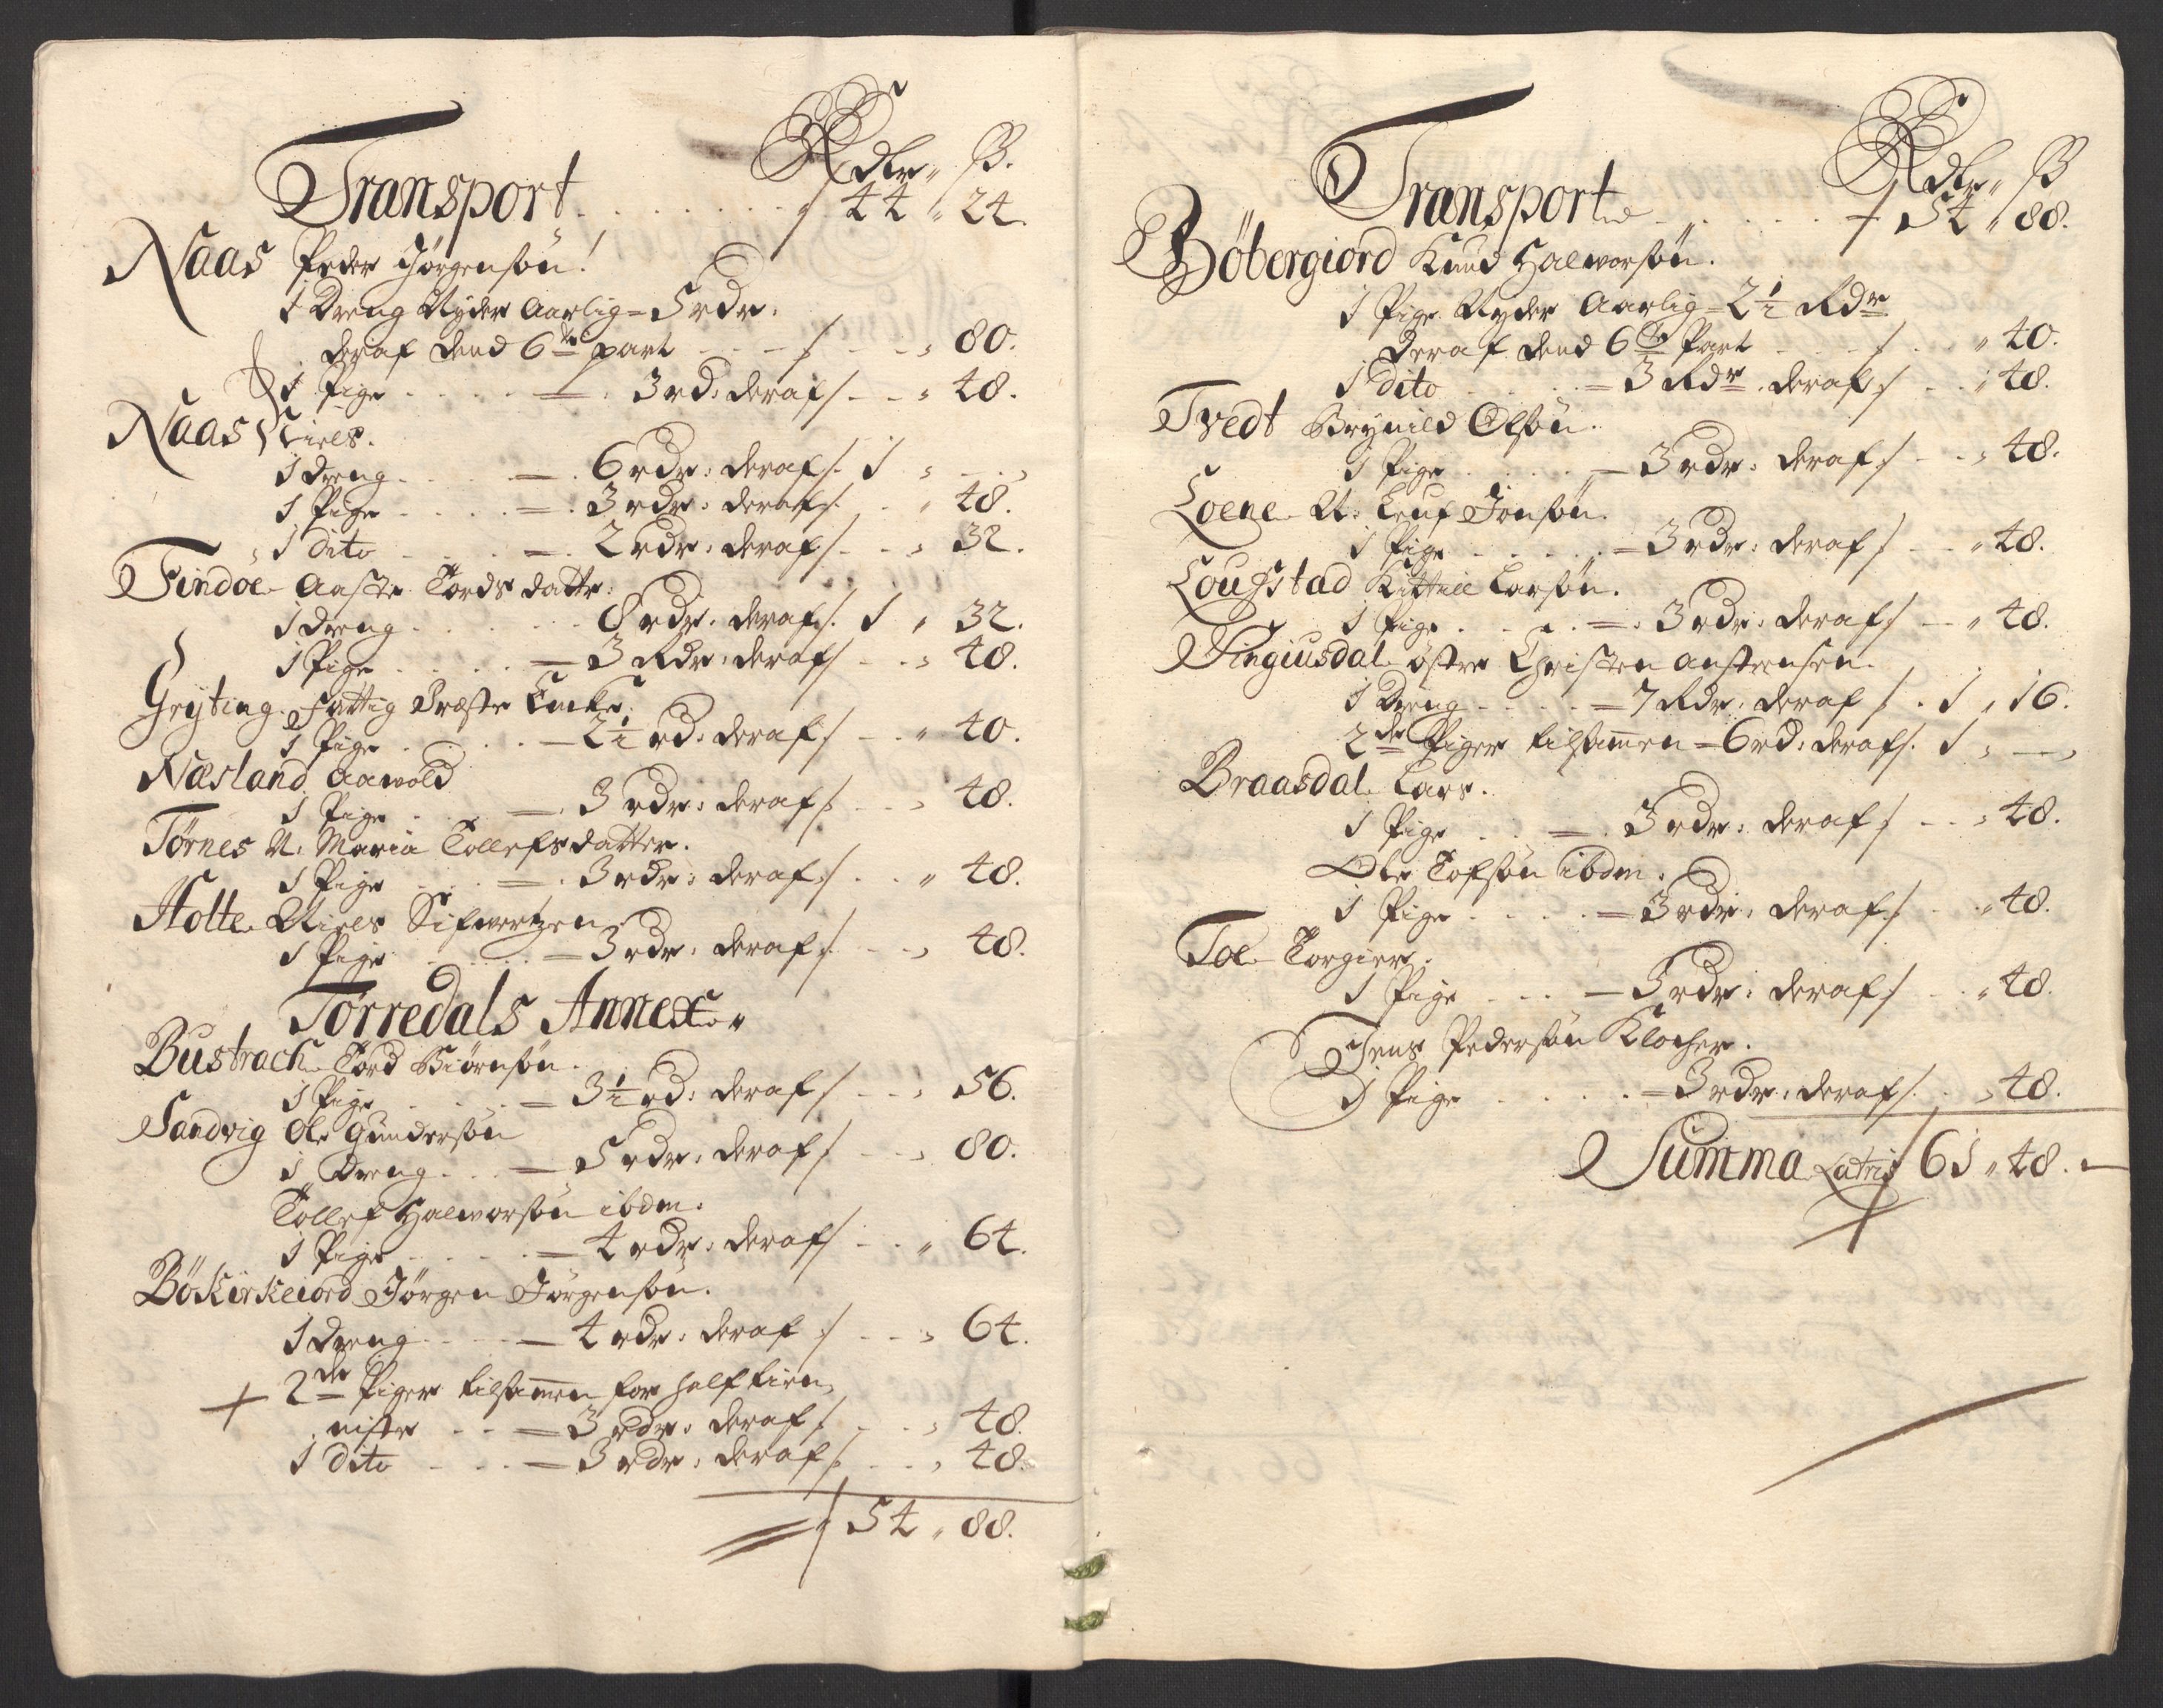 Rdlr„ ß.
Transport . . . . . . . . 44 „ 24.
Naas Peder Jörgensön!
1 Dreng Nyder Aarlig = 5 rdr.
deraf dend 6te part - - - - - „ 80.
1 Pige - - - = . 3 rd: deraf - - „ 48.
Naas Niels.
1 dreng . . . = . 6 rdr: deraf . 1 „ - -
1 Pige . . . . = . 3 rdr: deraf . . „ 48.
1 dito . . . = . 2 rdr: deraf . . „ 32.
Findöe Aaste Tords datter:
1 dreng . . . . . 8 rdr: deraf . 1 „ 32.
1 Pige . . . . = 3 Rdr: deraf . . „ 48.
Greÿting fattig Præste Encke:
1 Pige . . . . = 2½ rd: deraf . . „ 40.
Næsland Aawold
1 Pige . . . = . 3 rdr: deraf . . „ 48.
Törnes N: Maria Tollefsdatter.
1 Pige . . . = . 3 rdr: deraf . . „ 48.
Holte Niels Sifwertzen
1 Pige . . . . = 3 rdr: deraf . . „ 48.
Törredals Annex„
Bustrach Tord Biörnsön.
1 Pige . . . = 3½ rd: deraf . . „ 56.
Sandvig Ole Gundersön
1 Dreng . . . = 5 rdr: deraf . . „ 80.
Tollef Halworsön ibdm.
1 Pige . . . . = 4 rdr: deraf . . „ 64.
BöKirkeiord Jörgen Jörgensön.
1 dreng . . . = 4 rdr: deraf . . „ 64.
+ 2de Piger tilsamen for half tien„
niste . . = 3 rdr: deraf . . „ 48.
1 dito . . . = 3 rdr: deraf . . „ 48.
54 „ 88.
Rdlr„ ß
Transport . . . . . . 54 „ 88.
Böbergiord Knud Halworsön.
1 Pige Nyder Aarlig = 2½ Rdr
deraf dend 6te Part . . . . „ 40.
1 dito . . . = 3 Rdr. deraf . . „ 48.
Tvedt Brÿnild Olsön.
1 Pige . . . . = 3 rdr: deraf . . „ 48.
Loene N: Leuf Jonsön.
1 Pige . . . . = 3 rdr: deraf . . „ 48.
Lougstad Kittill Larsön.
1 Pige . . . = . 3 rdr: deraf . . „ 48.
östre Christen Anstensen.
1 Dreng . . . = 7 Rdr: deraf . 1 „ 16.
2de Piger tilsamen = 6 rd: deraf . 1 „ —
Braasdal Lars.
1 Pige . . = . 3 rdr: deraf . . „ 48.
Ole Tofsön ibdm.
1 Pige . . . . = 3 rdr: deraf . . „ 48.
Toe Torgier.
1 Pige . . . = 3 rdr: deraf . . „ 48.
Jens Pedersön Klocher.
1 Pige . . . . = 3 rdr: deraf . . „ 48.
Summa Latris 61 „ 48. —